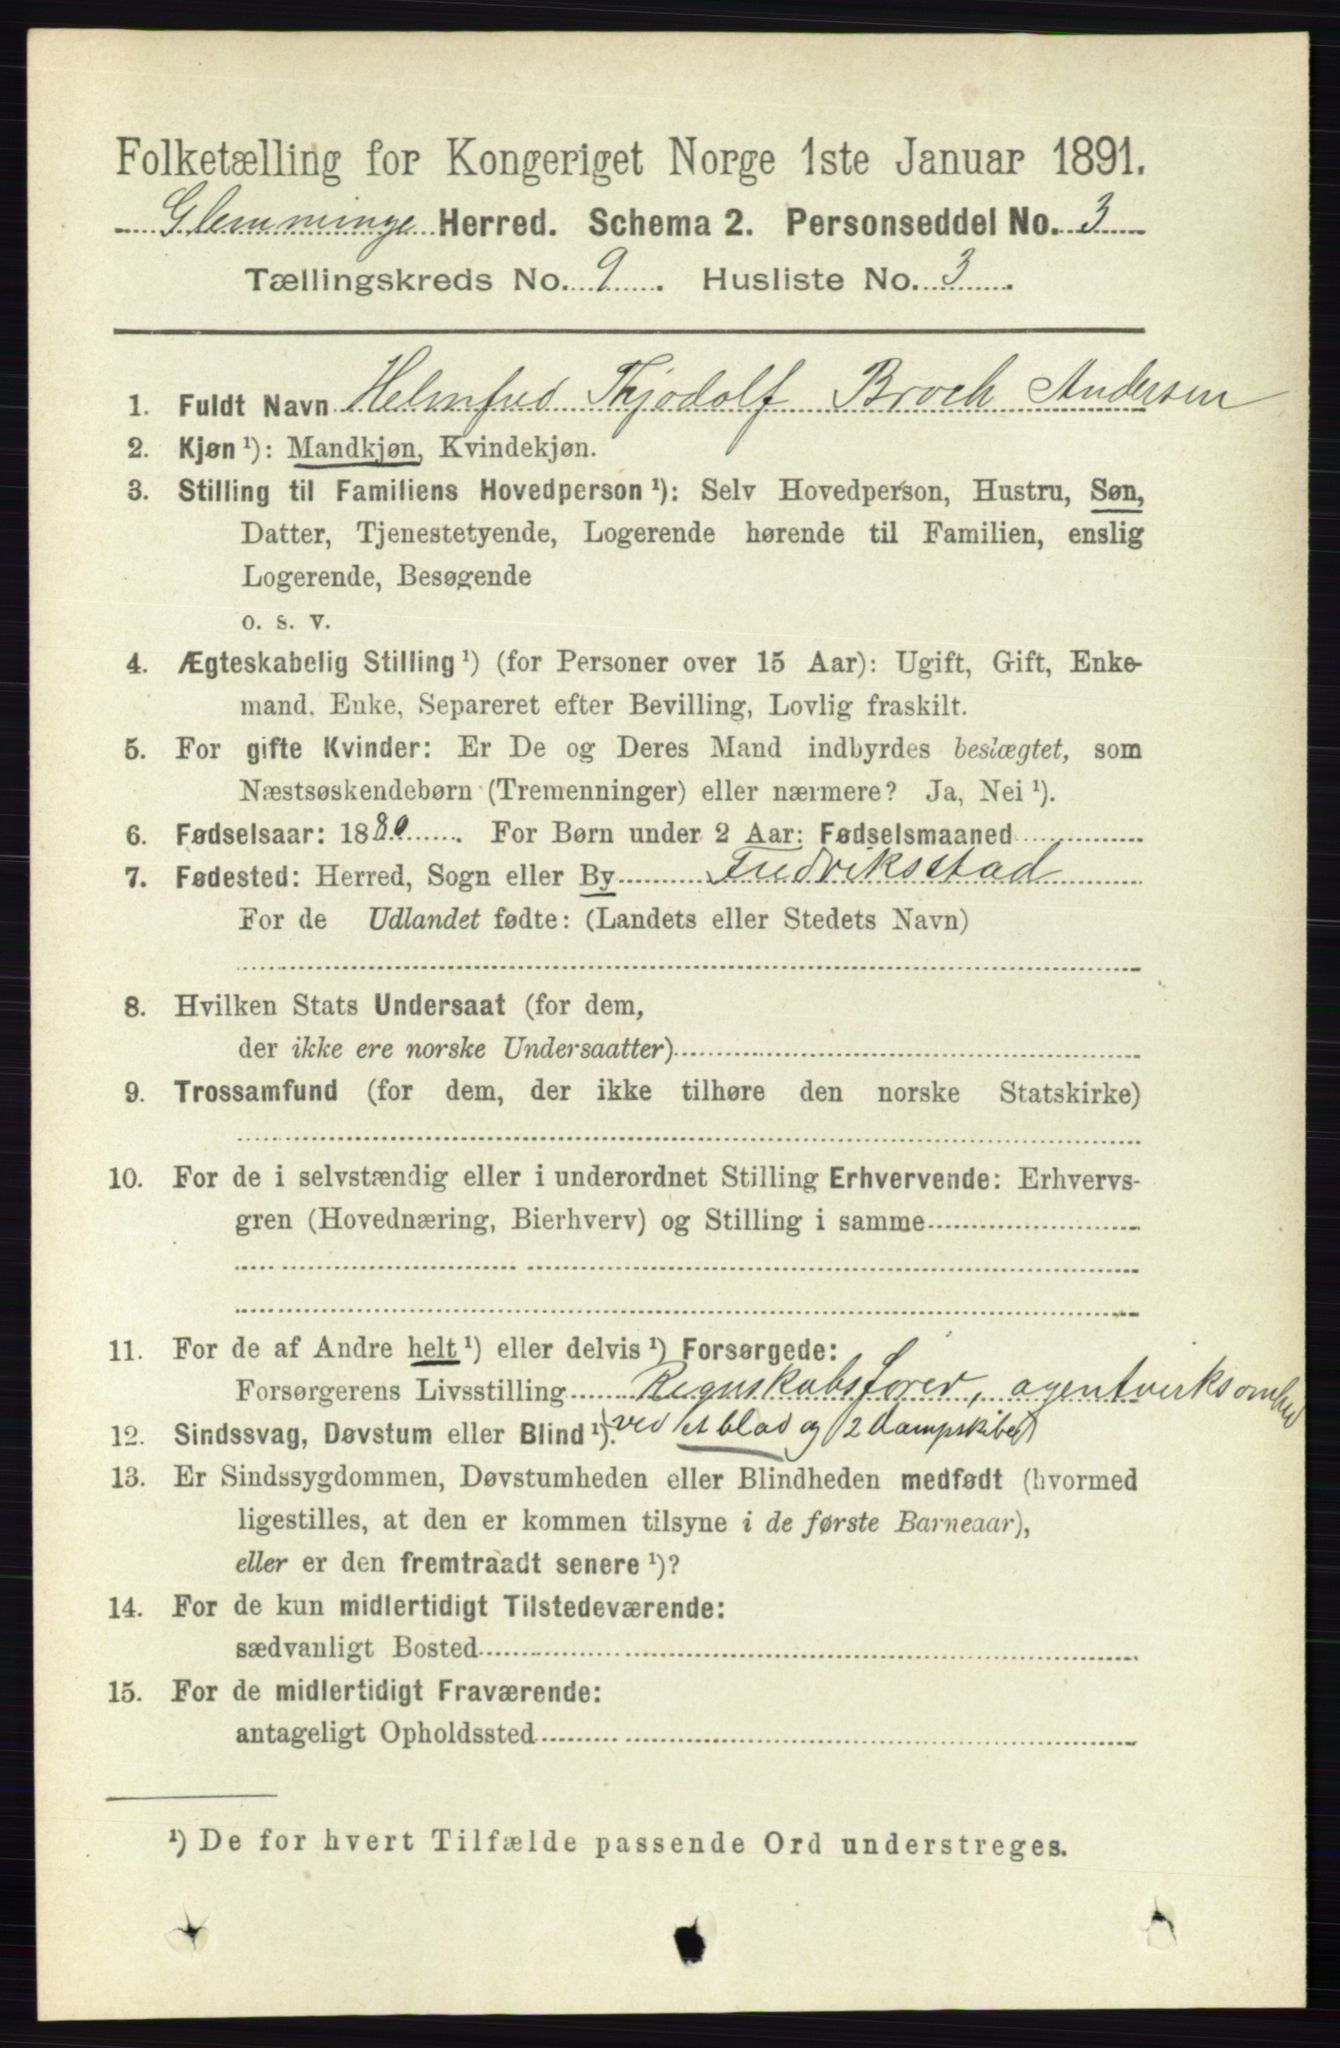 Folketælling for Kongeriget Norge 1ste Januar 1891.
Glemminge Herred. Schema 2. Personseddel No. 3
Tællingskreds No. 9. Husliste No. 3.
1. Fuldt Navn Helmfred Thjodolf Broch Andersen
2. Kjøn ¹): Mandkjøn, Kvindekjøn.
3. Stilling til Familiens Hovedperson ¹): Selv Hovedperson, Hustru, Søn,
Datter, Tjenestetyende, Logerende hørende til Familien, enslig
Logerende, Besøgende
o. s. v.
4. Ægteskabelig Stilling ¹) (for Personer over 15 Aar): Ugift, Gift, Enke-
mand, Enke, Separeret efter Bevilling, Lovlig fraskilt.
5. For gifte Kvinder: Er De og Deres Mand indbyrdes beslægtet, som
Næstsøskendebørn (Tremenninger) eller nærmere? Ja, Nei ¹).
6. Fødselsaar: 1880. For Børn under 2 Aar: Fødselsmaaned
7. Fødested: Herred, Sogn eller By Fredriksstad
For de Udlandet fødte: (Landets eller Stedets Navn)
8. Hvilken Stats Undersaat (for dem,
der ikke ere norske Undersaatter)
9. Trossamfund (for dem, der ikke tilhøre den norske Statskirke)
10. For de i selvstændig eller i underordnet Stilling Erhvervende: Erhvervs-
gren (Hovednæring, Bierhverv) og Stilling i samme
11. For de af Andre helt ¹) eller delvis ¹) Forsørgede:
Forsørgerens Livsstilling Regnskabsfører, agentvirksomhed
12. Sindssvag, Døvstum eller Blind ¹). ved et blad og 2 dampskibe)
13. Er Sindssygdommen, Døvstumheden eller Blindheden medfødt (hvormed
ligestilles, at den er kommen tilsyne i de første Barneaar),
eller er den fremtraadt senere ¹)?
14. For de kun midlertidigt Tilstedeværende:
sædvanligt Bosted
15. For de midlertidigt Fraværende:
antageligt Opholdssted
¹) De for hvert Tilfælde passende Ord understreges.